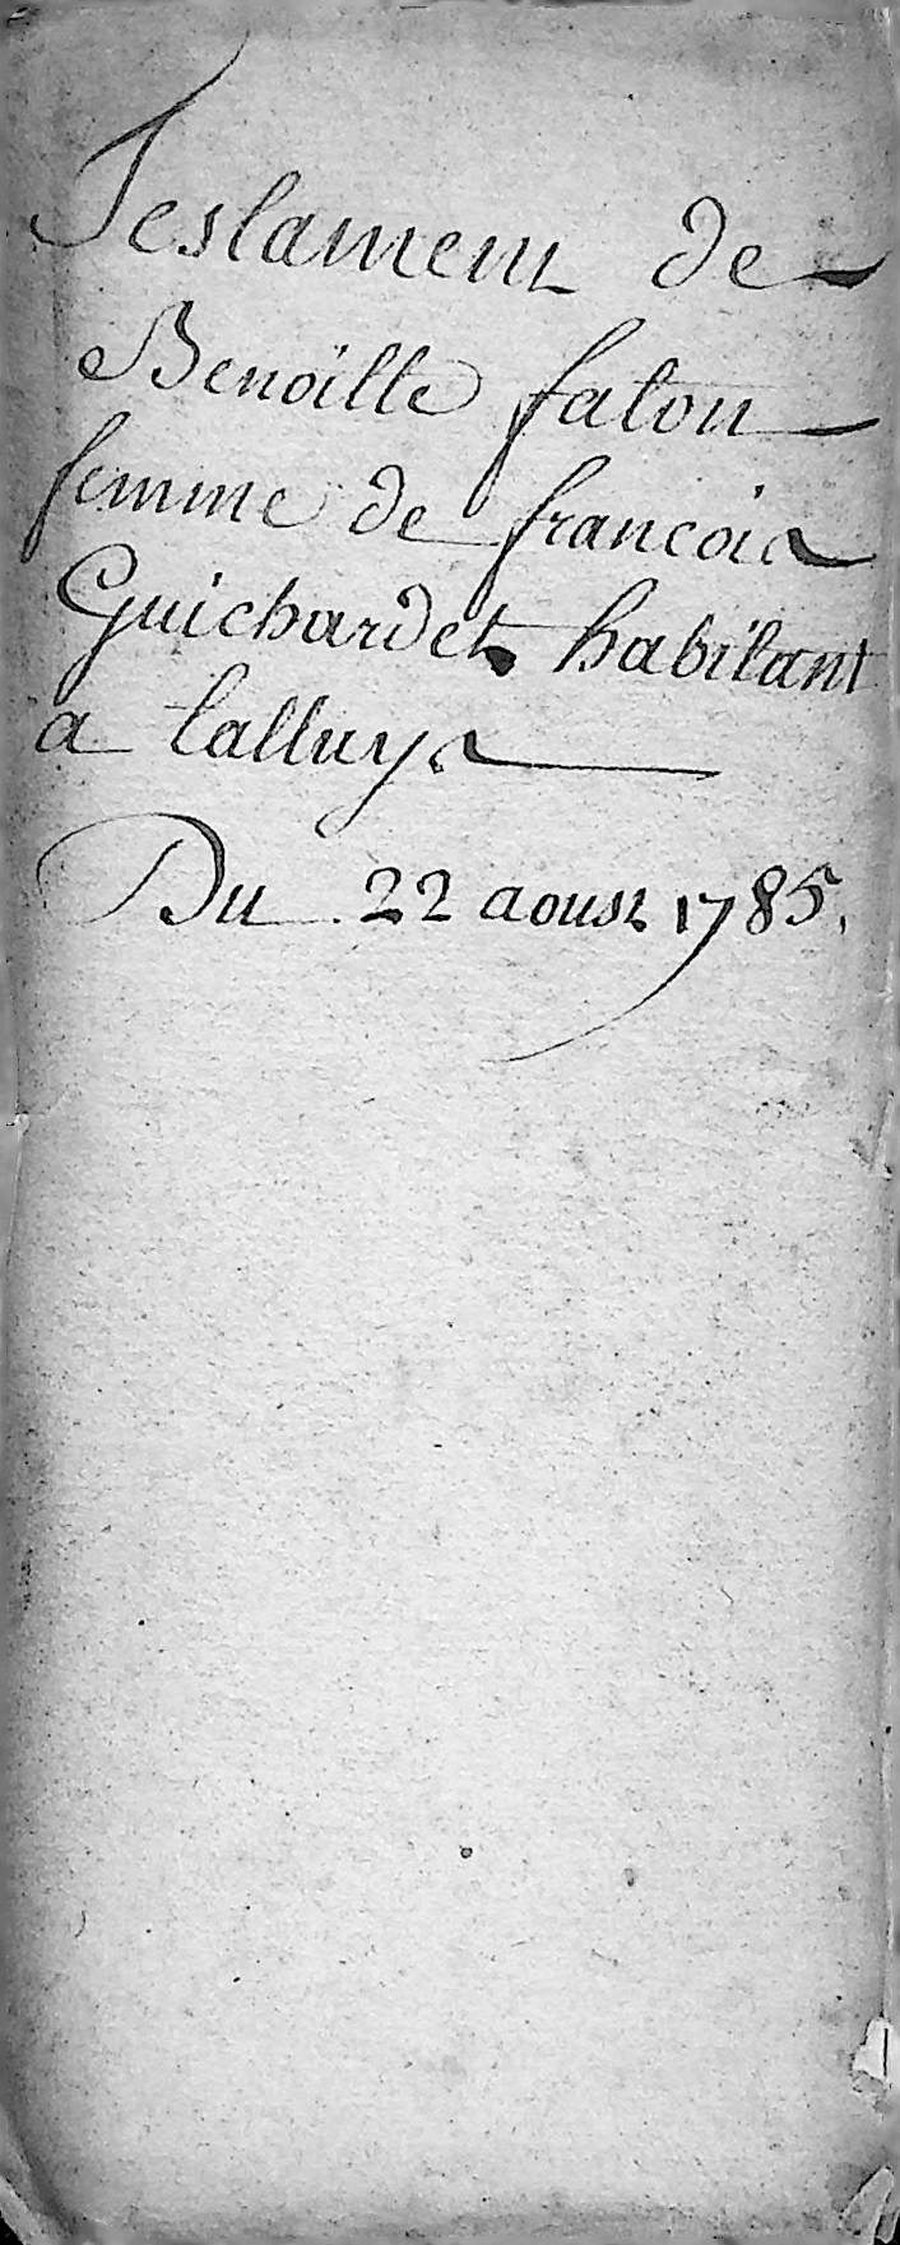 Testament de
Benoîtte faton
femme de francois
Guichardet habitant
a talluys
Du 22 aoust 1785.